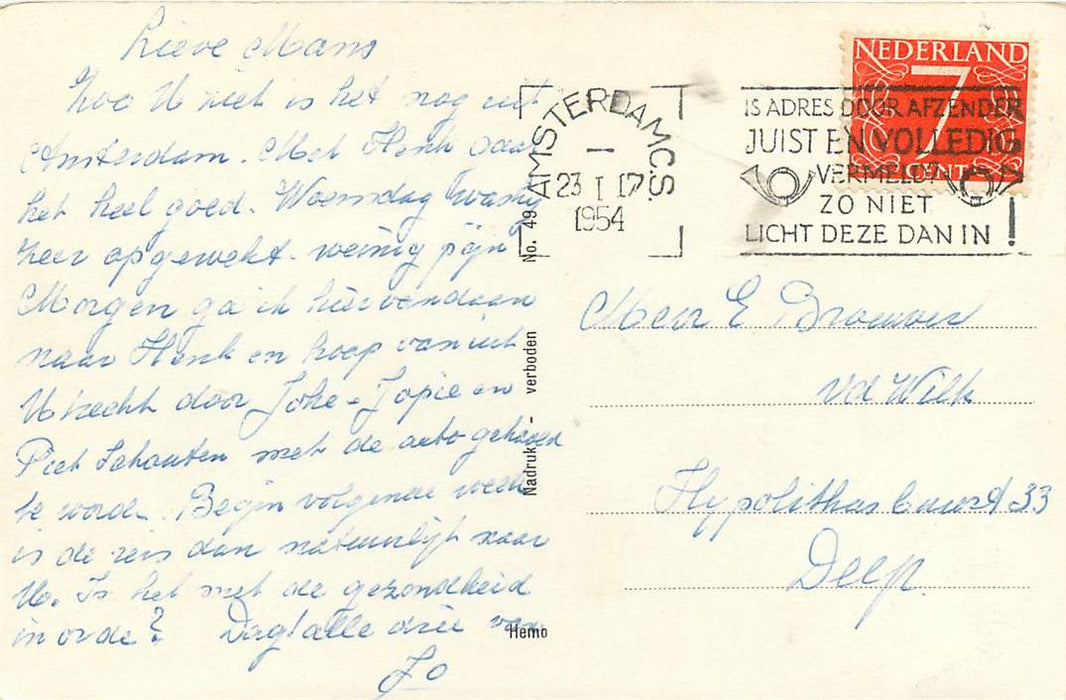 Lieve Mans
Zoo U ziet is het nog uit
Amsterdam. Met Henk gaat
het heel goed. Woensdag was hij
zeer opgewekt. weinig pijn
Morgen ga ik hiervandaan
naar Henk en hoop vanuit
Utrecht door Joke - Jopie en
Piet Schouten met de auto gehaald
te word. Begin volgende week
is de reis dan natuurlijk naar
U. Is het met de gezondheid
in orde? Dag! alle drie van
Jo
No. 49
Nadruk - verboden
Hemo
NEDERLAND
7
CENT
AMSTERDAM C.S.
23 I 17
1954
IS ADRES DOOR AFZENDER
JUIST EN VOLLEDIG
VERMELD?
ZO NIET
LICHT DEZE DAN IN !
E Brouwer
vd Wilk
33